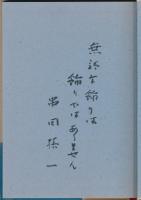 無
飾りは
飾りではありません
串田孫一